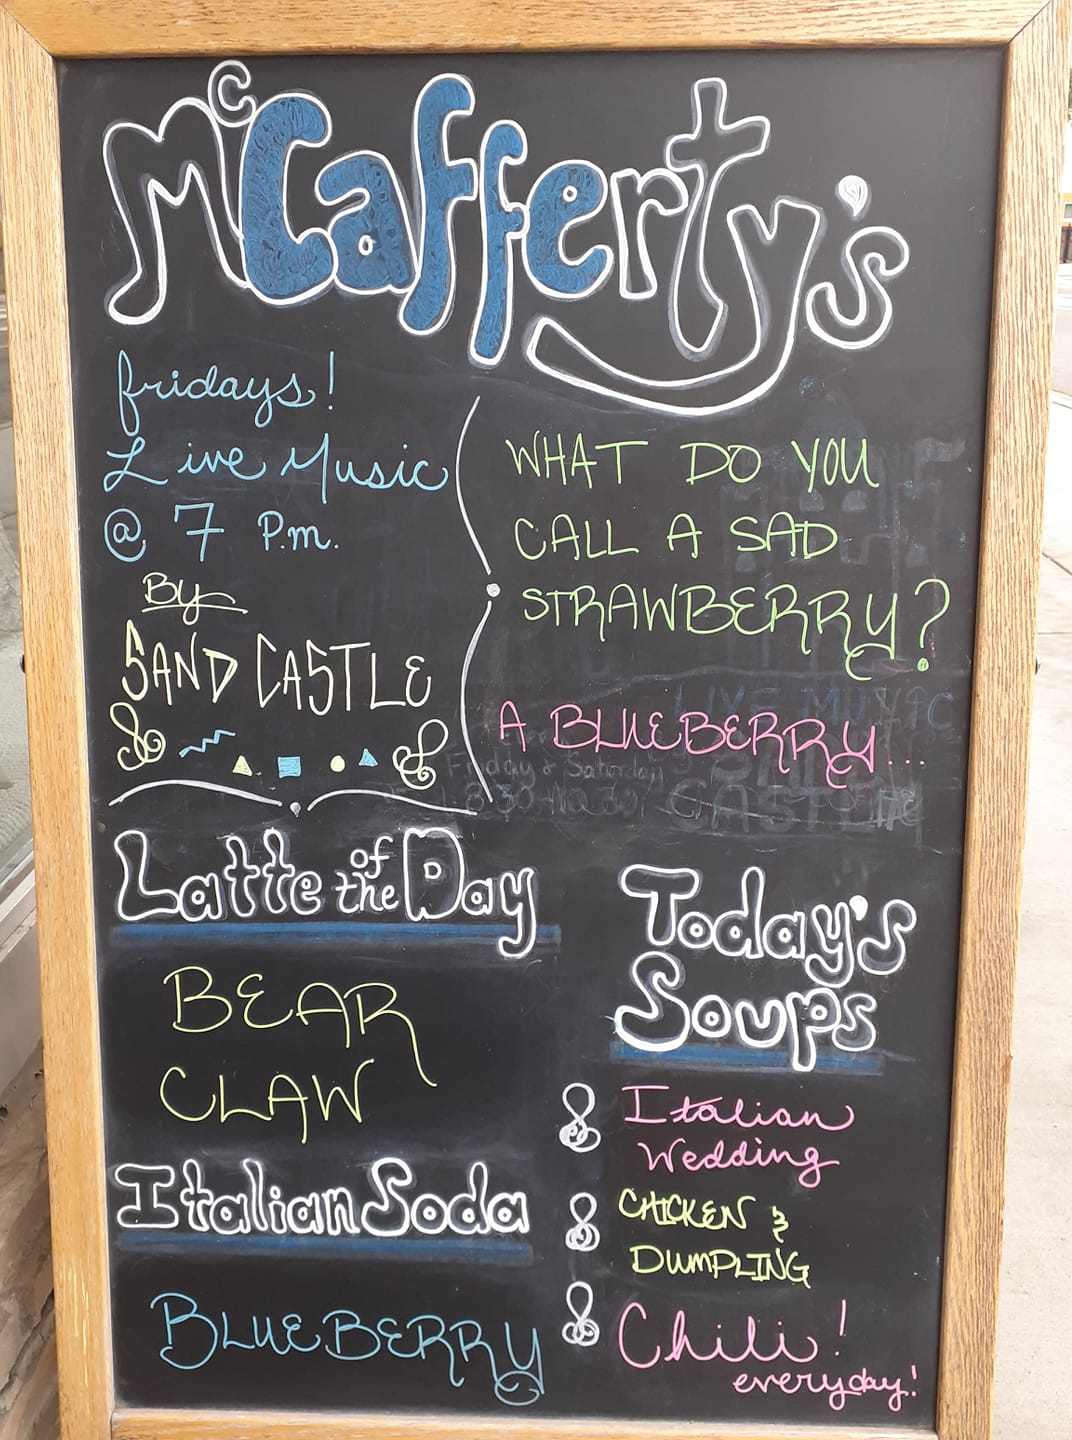 McCafferty's
fridays!
Live Music
@ 7 P.m.
By
SAND CASTLE
WHAT DO YOU
CALL A SAD
STRAWBERRY?
A BLUEBERRY...
LIVE MUSIC
Friday & Saturday
CASTLE
Latte of the Day
BEAR
CLAW
Italian Soda
BLUEBERRY
Today's
Soups
Italian
Wedding
CHICKEN &
DUMPLING
Chili!
everyday!